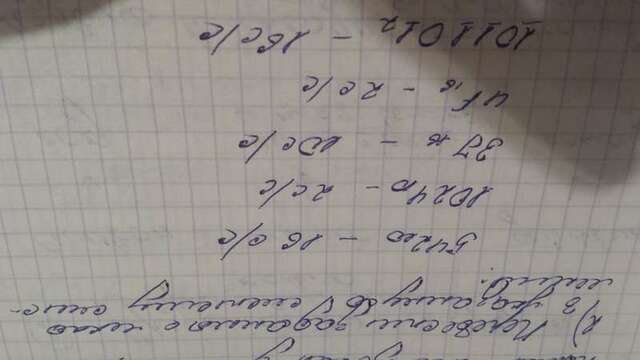 2) Перевести заданное число
в указанную систему счис-
ления:
542₁₀ – 16 с/с
1024₁₀ – 2 с/с
37₁₆ – 10 с/с
4F₁₆ – 2 с/с
101101₂ – 16 с/с